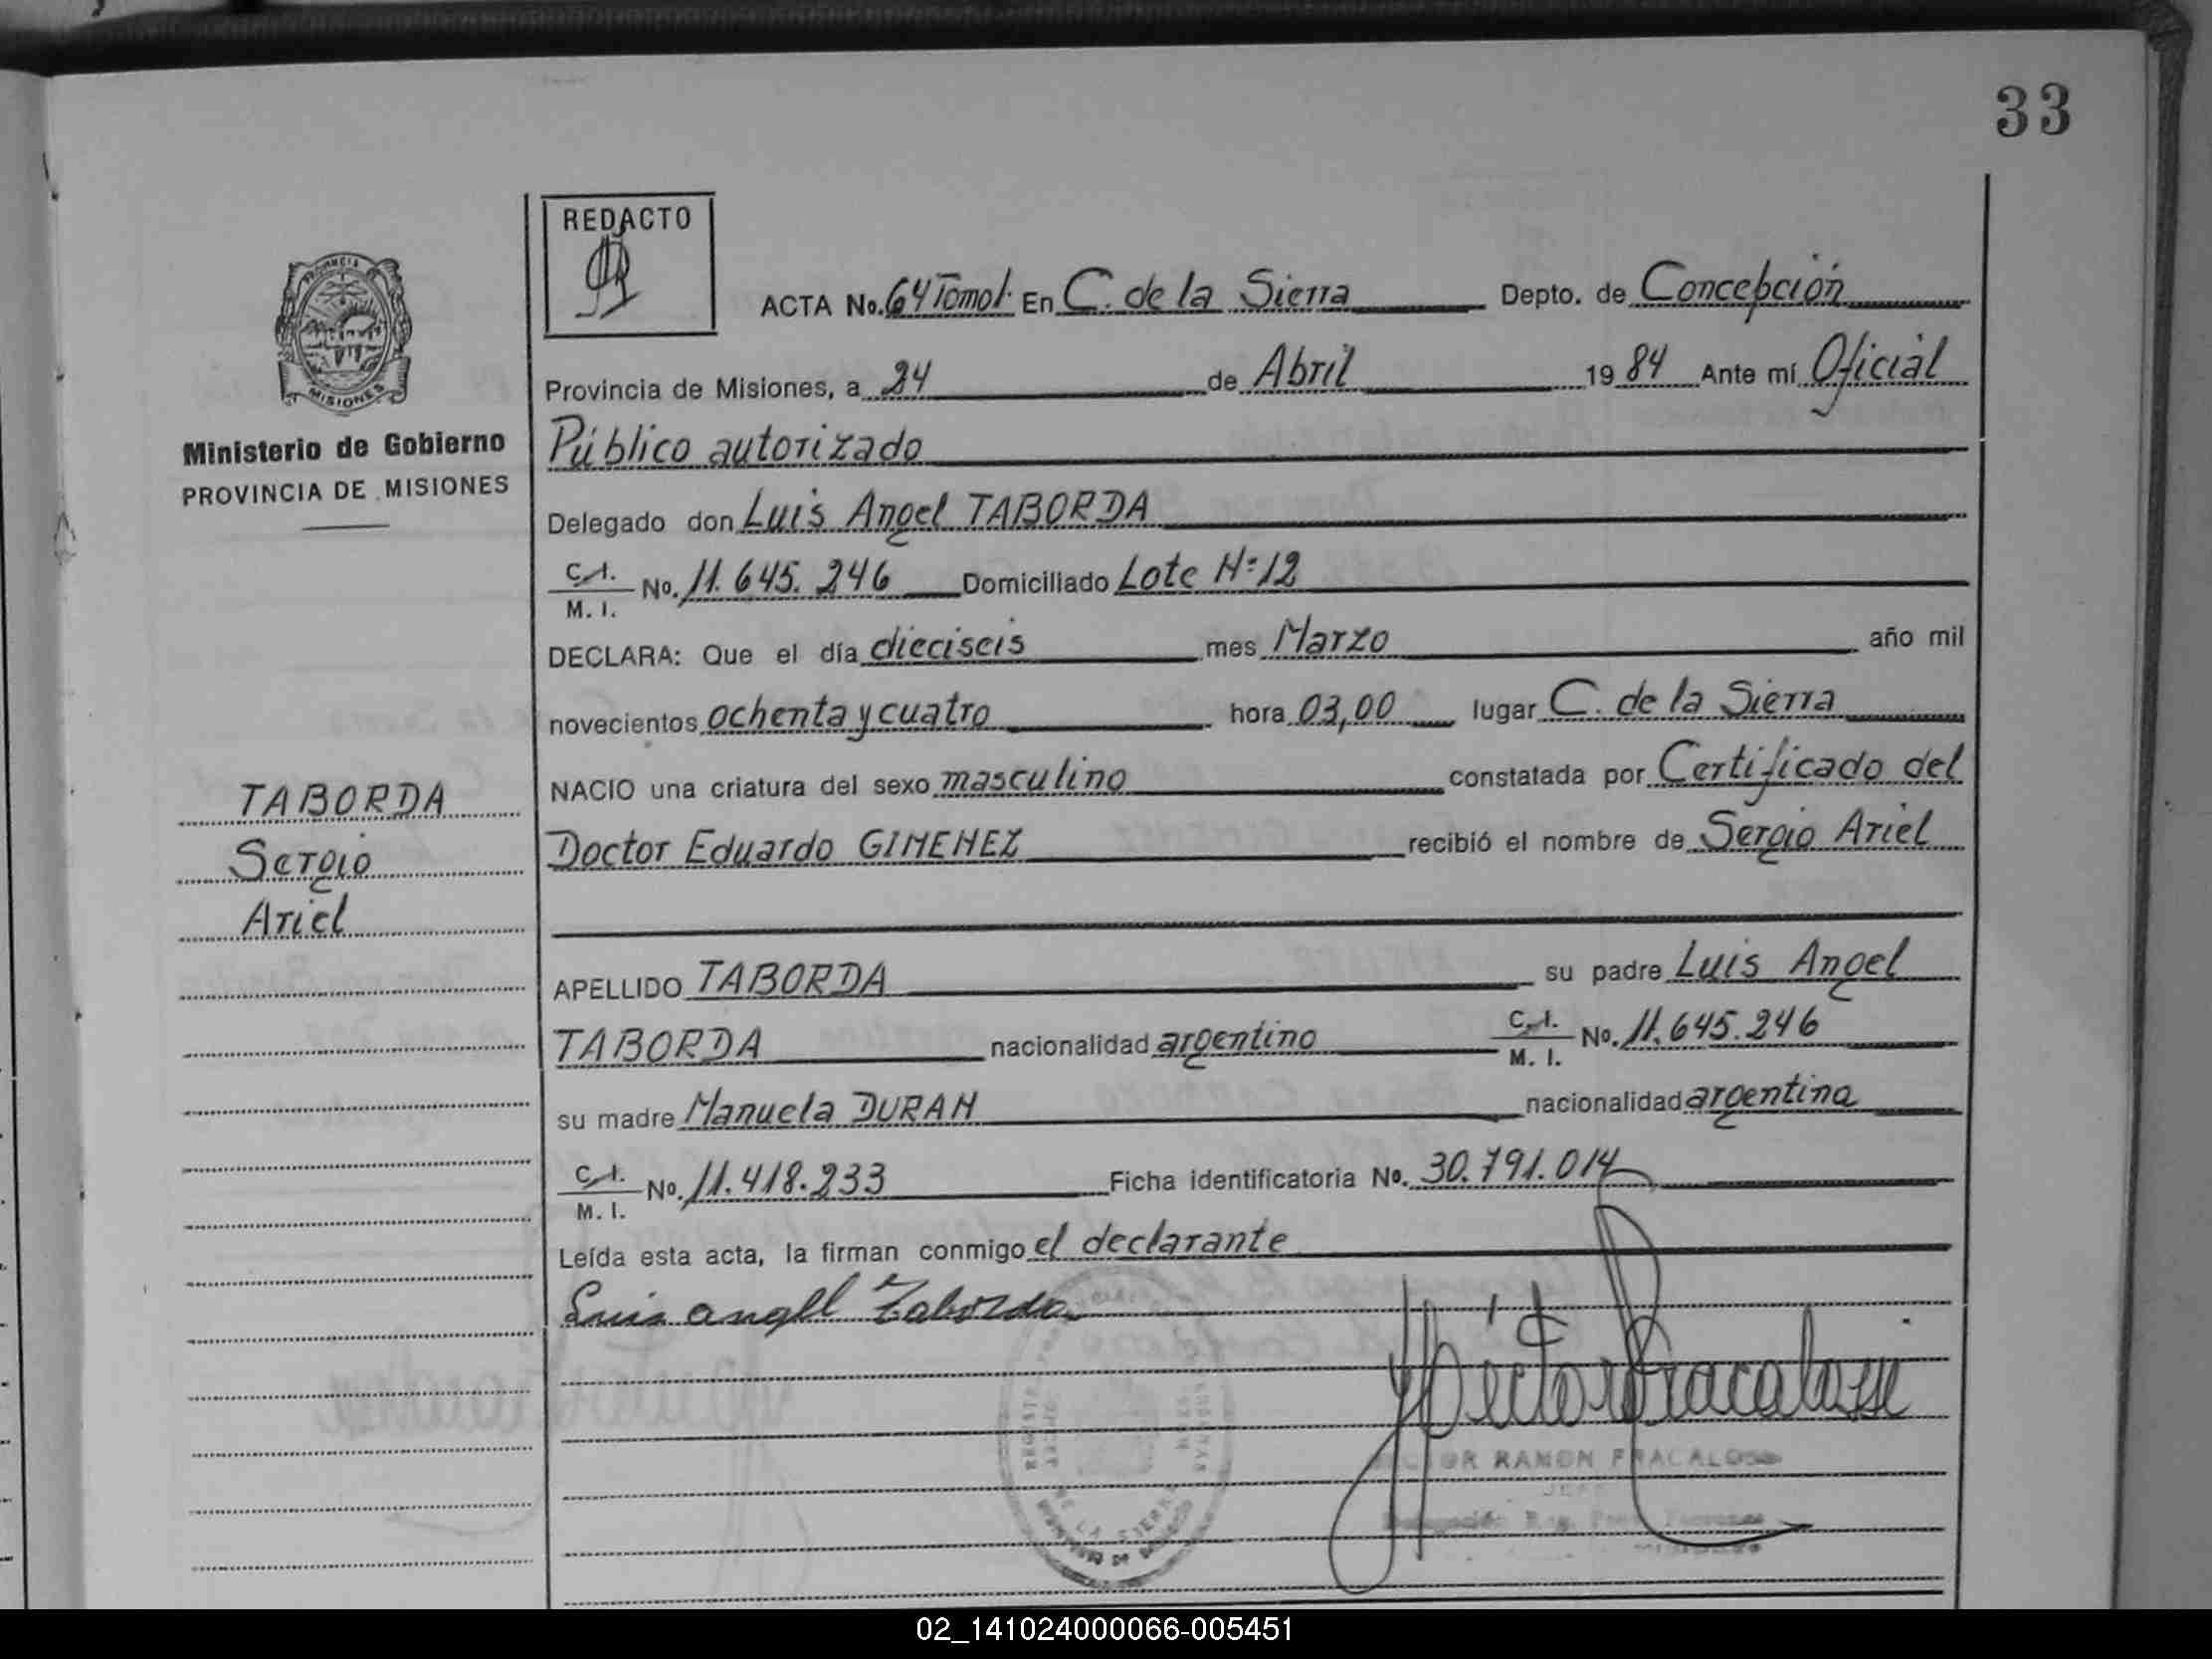 33
REDACTO
ACTA No. 64 Tomo I. En C. de la Sierra Depto. de Concepción
Provincia de Misiones, a 24 de Abril 1984 Ante mí Oficial
Público autorizado
Delegado don Luis Angel TABORDA
C.I. M. I. No. 11.645.246 Domiciliado Lote Nº 12
DECLARA: Que el día dieciseis mes Marzo año mil
novecientos ochenta y cuatro hora 03,00 lugar C. de la Sierra
NACIO una criatura del sexo masculino constatada por Certificado del
Doctor Eduardo GIMENEZ recibió el nombre de Sergio Ariel
APELLIDO TABORDA su padre Luis Angel
TABORDA nacionalidad argentino C.I. M. I. No. 11.645.246
su madre Manuela DURAN nacionalidad argentina
C.I. M. I. No. 11.418.233 Ficha identificatoria No. 30.791.014
Leída esta acta, la firman conmigo el declarante
Luis angel Taborda
Hector Fracalossi
RAMON FRACALOSSI
JEFE
PROVINCIA
MISIONES
Ministerio de Gobierno
PROVINCIA DE MISIONES
TABORDA
Sergio
Ariel
DE LA SIERRA
02_141024000066-005451